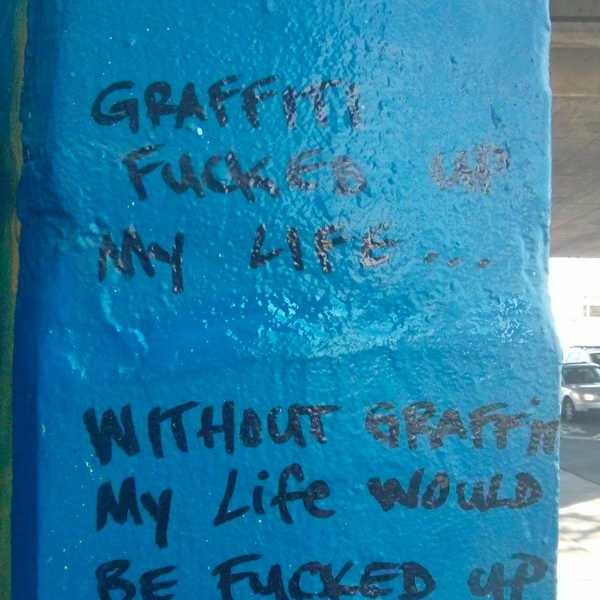 GRAFFITI
FUCKED UP
MY LIFE...
WITHOUT GRAFFITI
My Life WOULD
BE FUCKED UP